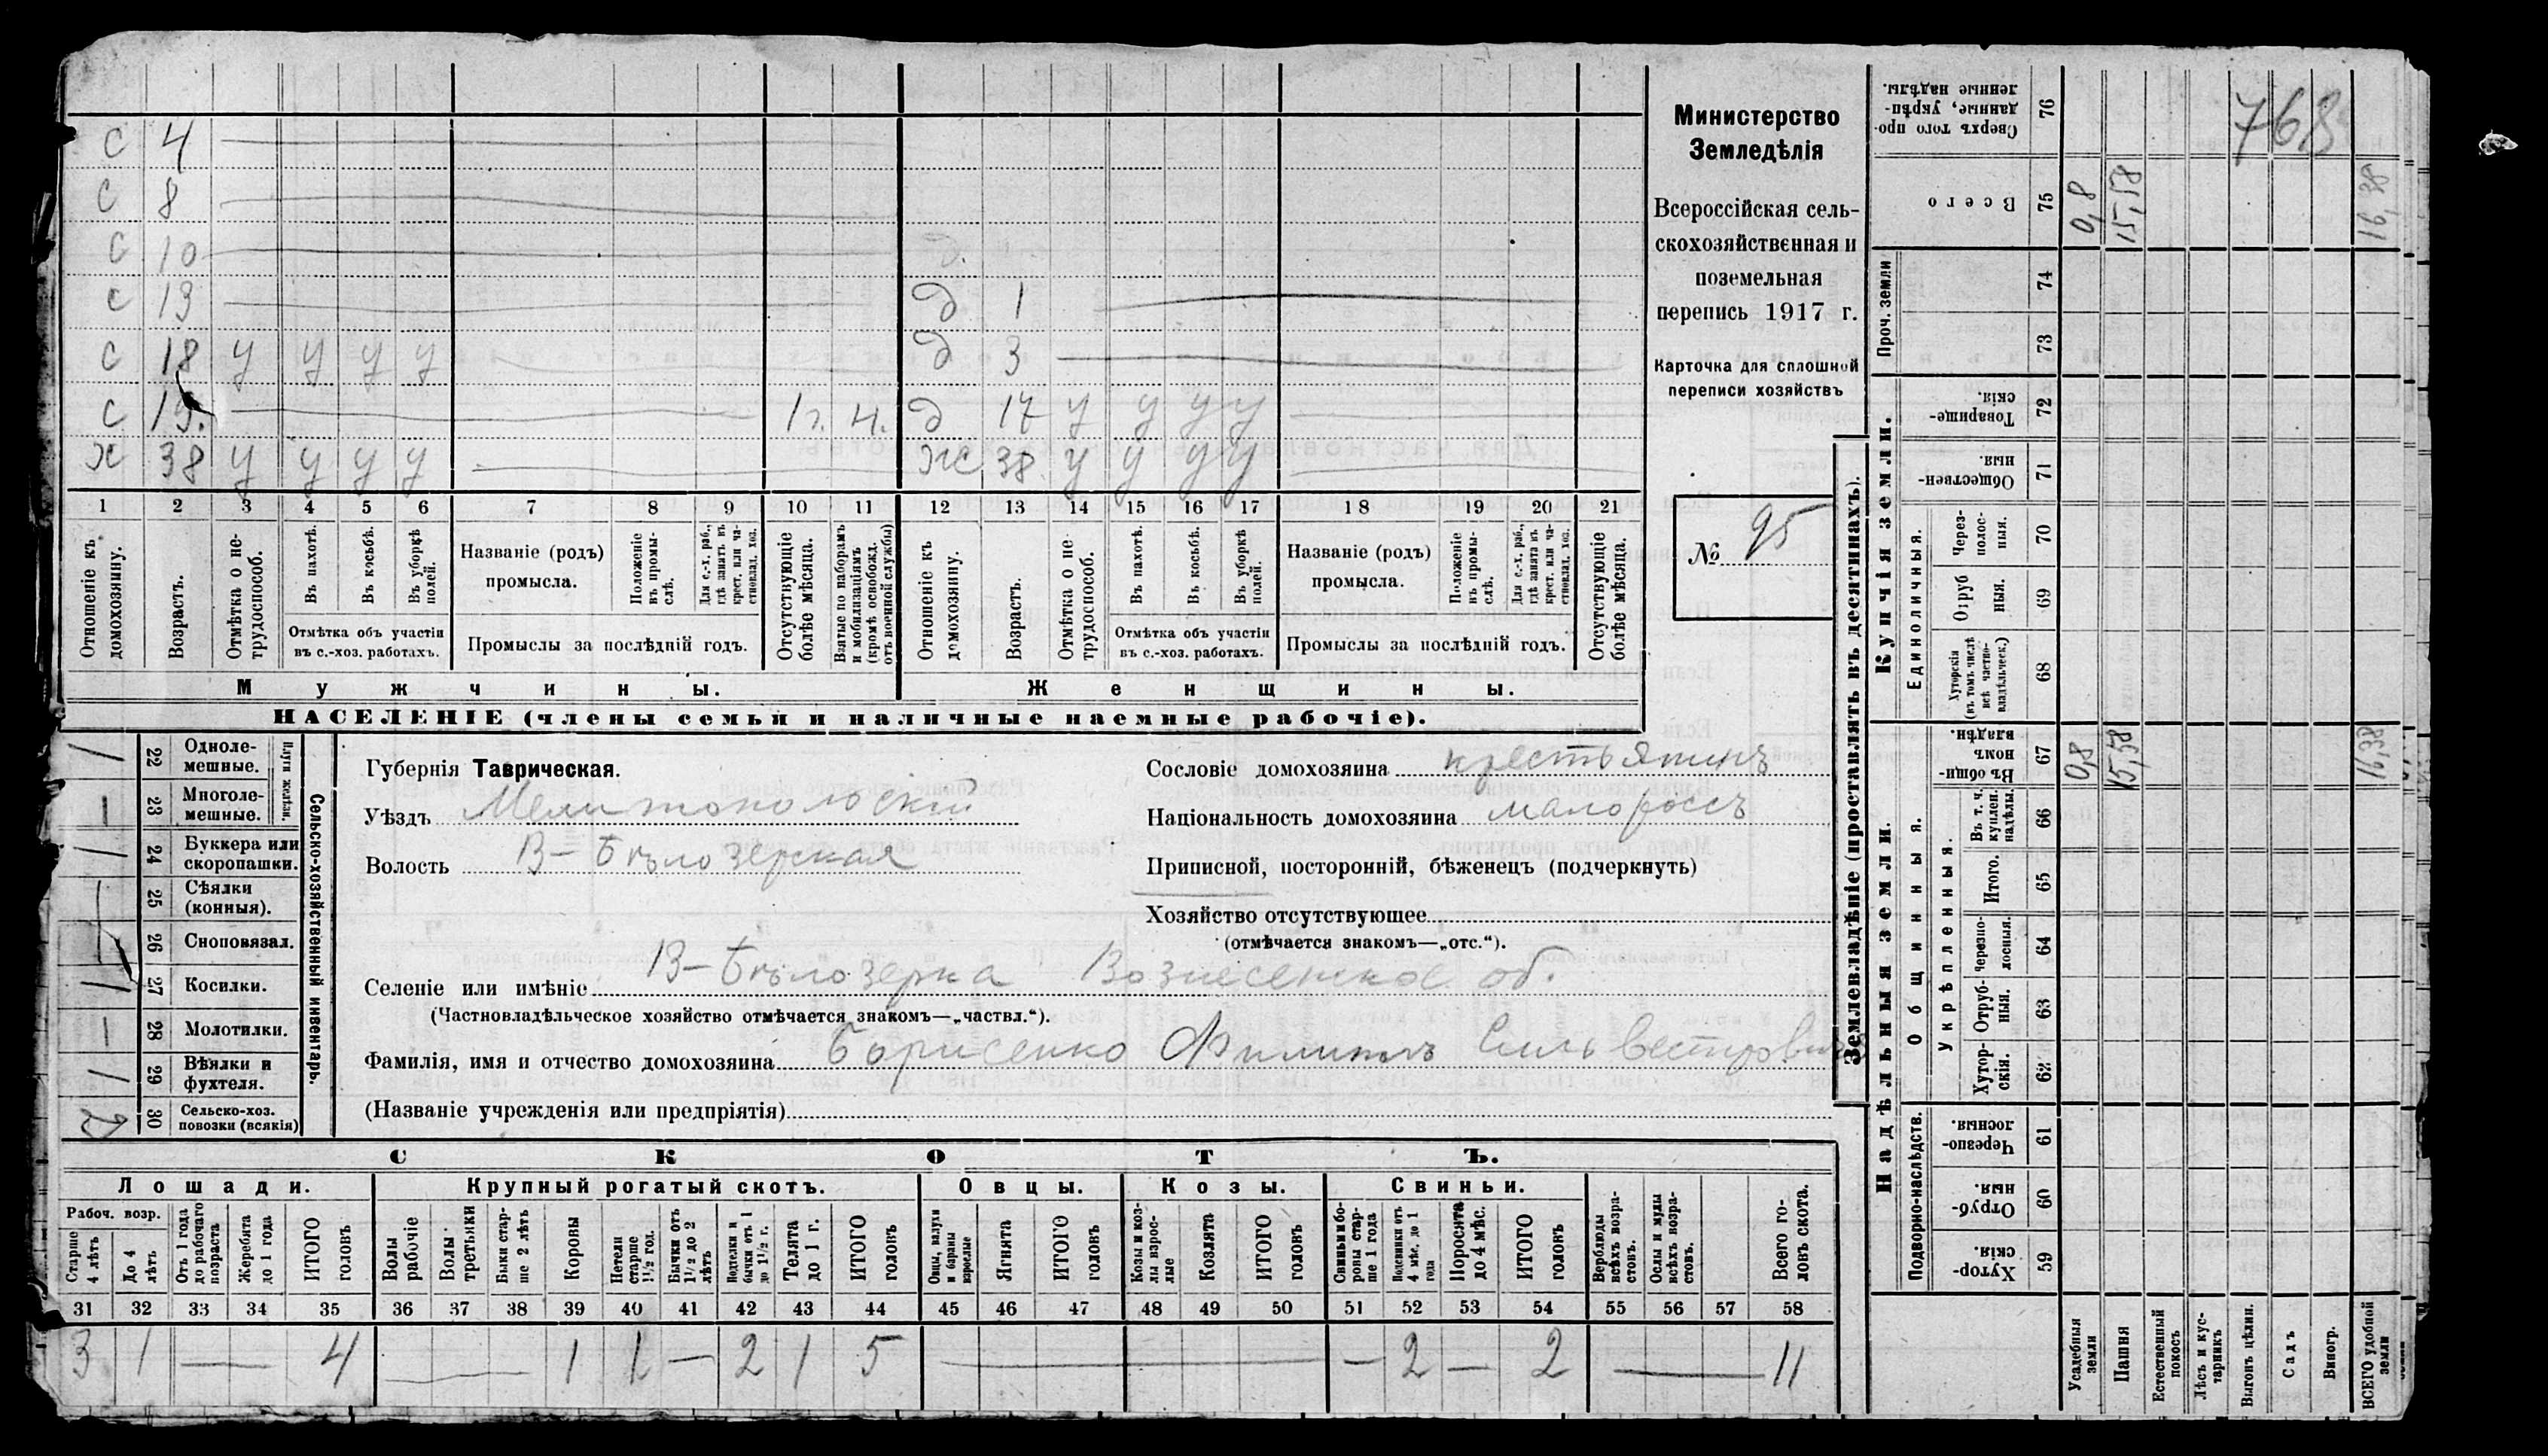 С 4
С 8
С 10
С 13
С 18 у у у у
С 19. 1 г. 4.
Х 38 у у у у
д 1
д 3
д 17 у у у у
Ж 38 у у у у
1 2 3 4 5 6 7 8 9 10 11 12 13 14 15 16 17 18 19 20 21
Отношеніе къ домохозяину.
Возрастъ.
Отмѣтка о не-трудоспособ.
Въ пахотѣ.
Въ косьбѣ.
Въ уборкѣ полей.
Отмѣтка объ участіи въ с.-хоз. работахъ.
Названіе (родъ) промысла.
Положеніе въ промы-слѣ.
Для с.-х. раб., гдѣ занятъ въ крест. или ча-стновлад. хоз.
Промыслы за послѣдній годъ.
Отсутствующіе болѣе мѣсяца.
Взятые по наборамъ и мобилизаціямъ (кромѣ освобожд. отъ военной службы)
Отношеніе къ домохозяину.
Возрастъ.
Отмѣтка о не-трудоспособ.
Въ пахотѣ.
Въ косьбѣ.
Въ уборкѣ полей.
Отмѣтка объ участіи въ с.-хоз. работахъ.
Названіе (родъ) промысла.
Положеніе въ промы-слѣ.
Для с.-х. раб., гдѣ занятъ въ крест. или ча-стновлад. хоз.
Промыслы за послѣдній годъ.
Отсутствующіе болѣе мѣсяца.
Мужчины. Женщины.
НАСЕЛЕНІЕ (члены семьи и наличные наемные рабочіе).
Министерство
Земледѣлія
Всероссійская сель-
скохозяйственная и
поземельная
перепись 1917 г.
Карточка для сплошной
переписи хозяйствъ
№ 95
Сельско-хозяйственный инвентарь.
Плуги желѣзн.
1 22 Одноле-мешные.
— 23 Многоле-мешные.
1 24 Буккера или скоропашки.
25 Сѣялки (конныя).
26 Сноповязал.
1 27 Косилки.
— 28 Молотилки.
1 29 Вѣялки и фухтеля.
2 30 Сельско-хоз. повозки (всякія)
Губернія Таврическая.
Уѣздъ Мелитопольскій
Волость В-Бѣлозерская
Сословіе домохозяина крестьянинъ
Національность домохозяина малороссъ
Приписной, посторонній, бѣженецъ (подчеркнуть)
Хозяйство отсутствующее
(отмѣчается знакомъ—„отс.“).
Селеніе или имѣніе В-Бѣлозерка Вознесенское об.
(Частновладѣльческое хозяйство отмѣчается знакомъ—„частвл.“).
Фамилія, имя и отчество домохозяина Борисенко Филиппъ Сильвестровичъ
(Названіе учрежденія или предпріятія)
СКОТЪ.
Лошади. Крупный рогатый скотъ. Овцы. Козы. Свиньи.
Рабоч. возр.
Старше 4 лѣтъ
До 4 лѣтъ
Отъ 1 года до рабочаго возраста
Жеребята до 1 года
ИТОГО головъ
Волы рабочіе
Волы третьяки
Быки стар-ше 2 лѣтъ
Коровы
Нетели старше 1½ год.
Бычки отъ 1½ до 2 лѣтъ
Подтелки и бычки отъ 1 до 1½ г.
Телята до 1 г.
ИТОГО головъ
Овцы, валухи и бараны взрослые
Ягнята
ИТОГО головъ
Козы и коз-лы взрос-лые
Козлята
ИТОГО головъ
Свиньи и бо-ровы стар-ше 1 года
Подсвинки отъ 4 мѣс. до 1 года
Поросята до 4 мѣс.
ИТОГО головъ
Верблюды всѣхъ возра-стовъ.
Ослы и мулы всѣхъ возра-стовъ.
Всего го-ловъ скота.
31 32 33 34 35 36 37 38 39 40 41 42 43 44 45 46 47 48 49 50 51 52 53 54 55 56 57 58
3 1 — 4 — 1 1 — 2 1 5 — — 2 — 2 — 11
Землевладѣніе (проставлять въ десятинахъ).
Надѣльныя земли. Купчія земли.
Проч. земли
Подворно-наслѣдств.
Общинныя.
Укрѣпленныя.
Единоличныя.
Сверхъ того про-данные, укрѣп-ленные надѣлы. 76
768
Всего 75 0,8 15,58 16,38
74
73
Товарище-скія. 72
Обществен-ныя. 71
Через-полос-ныя. 70
Отруб ныя. 69
Хуторскія (въ томъ числѣ всѣ частно-владѣльческ.) 68
Въ общи-номъ владѣн. 67 0,8 15,58 16,38
Въ т. ч. куплен. надѣлы. 66
Итого. 65
Черезпо-лосныя. 64
Отруб-ныя. 63
Хутор-скія. 62
Черезпо-лосныя. 61
Отруб-ныя. 60
Хутор-скія. 59
Усадебныя земли
Пашня
Естественный покосъ
Лѣсъ и кус-тарникъ
Выгонъ цѣлин.
Садъ
Виногр.
ВСЕГО удобной земли